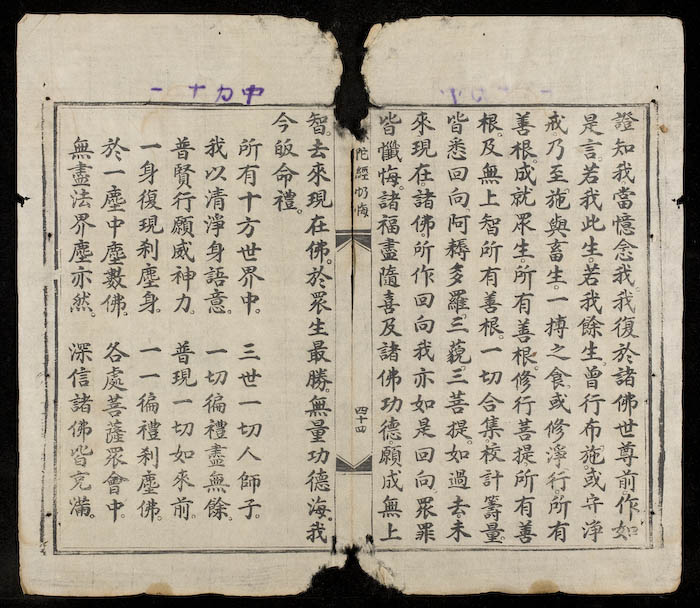 證知我當憶念我。我復於諸佛世尊前作如
是言。若我此生。若我餘生。曾行布施。或守淨
戒。乃至施與畜生。一摶之食。或修淨行。所有
善根。成就眾生。所有善根。修行菩提。所有善
根。及無上智。所有善根。一切合集。校計籌量。
皆悉回向阿耨多羅。三藐。三菩提。如過去。未
來。現在。諸佛。所作回向。我亦如是回向。眾罪
皆懺悔。諸福盡隨喜。及諸佛功德。願成無上
陀經 悔
四十四
智。去來現在佛。於眾生最勝。無量功德海。我
今皈命禮。
所有十方世界中。 三世一切人師子。
我以清淨身語意。 一切徧禮盡無餘。
普賢行願威神力。 普現一切如來前。
一身復現剎塵身。 一一徧禮剎塵佛。
於一塵中塵數佛。 各處菩薩眾會中。
無盡法界塵亦然。 深信諸佛皆充滿。
中力十一